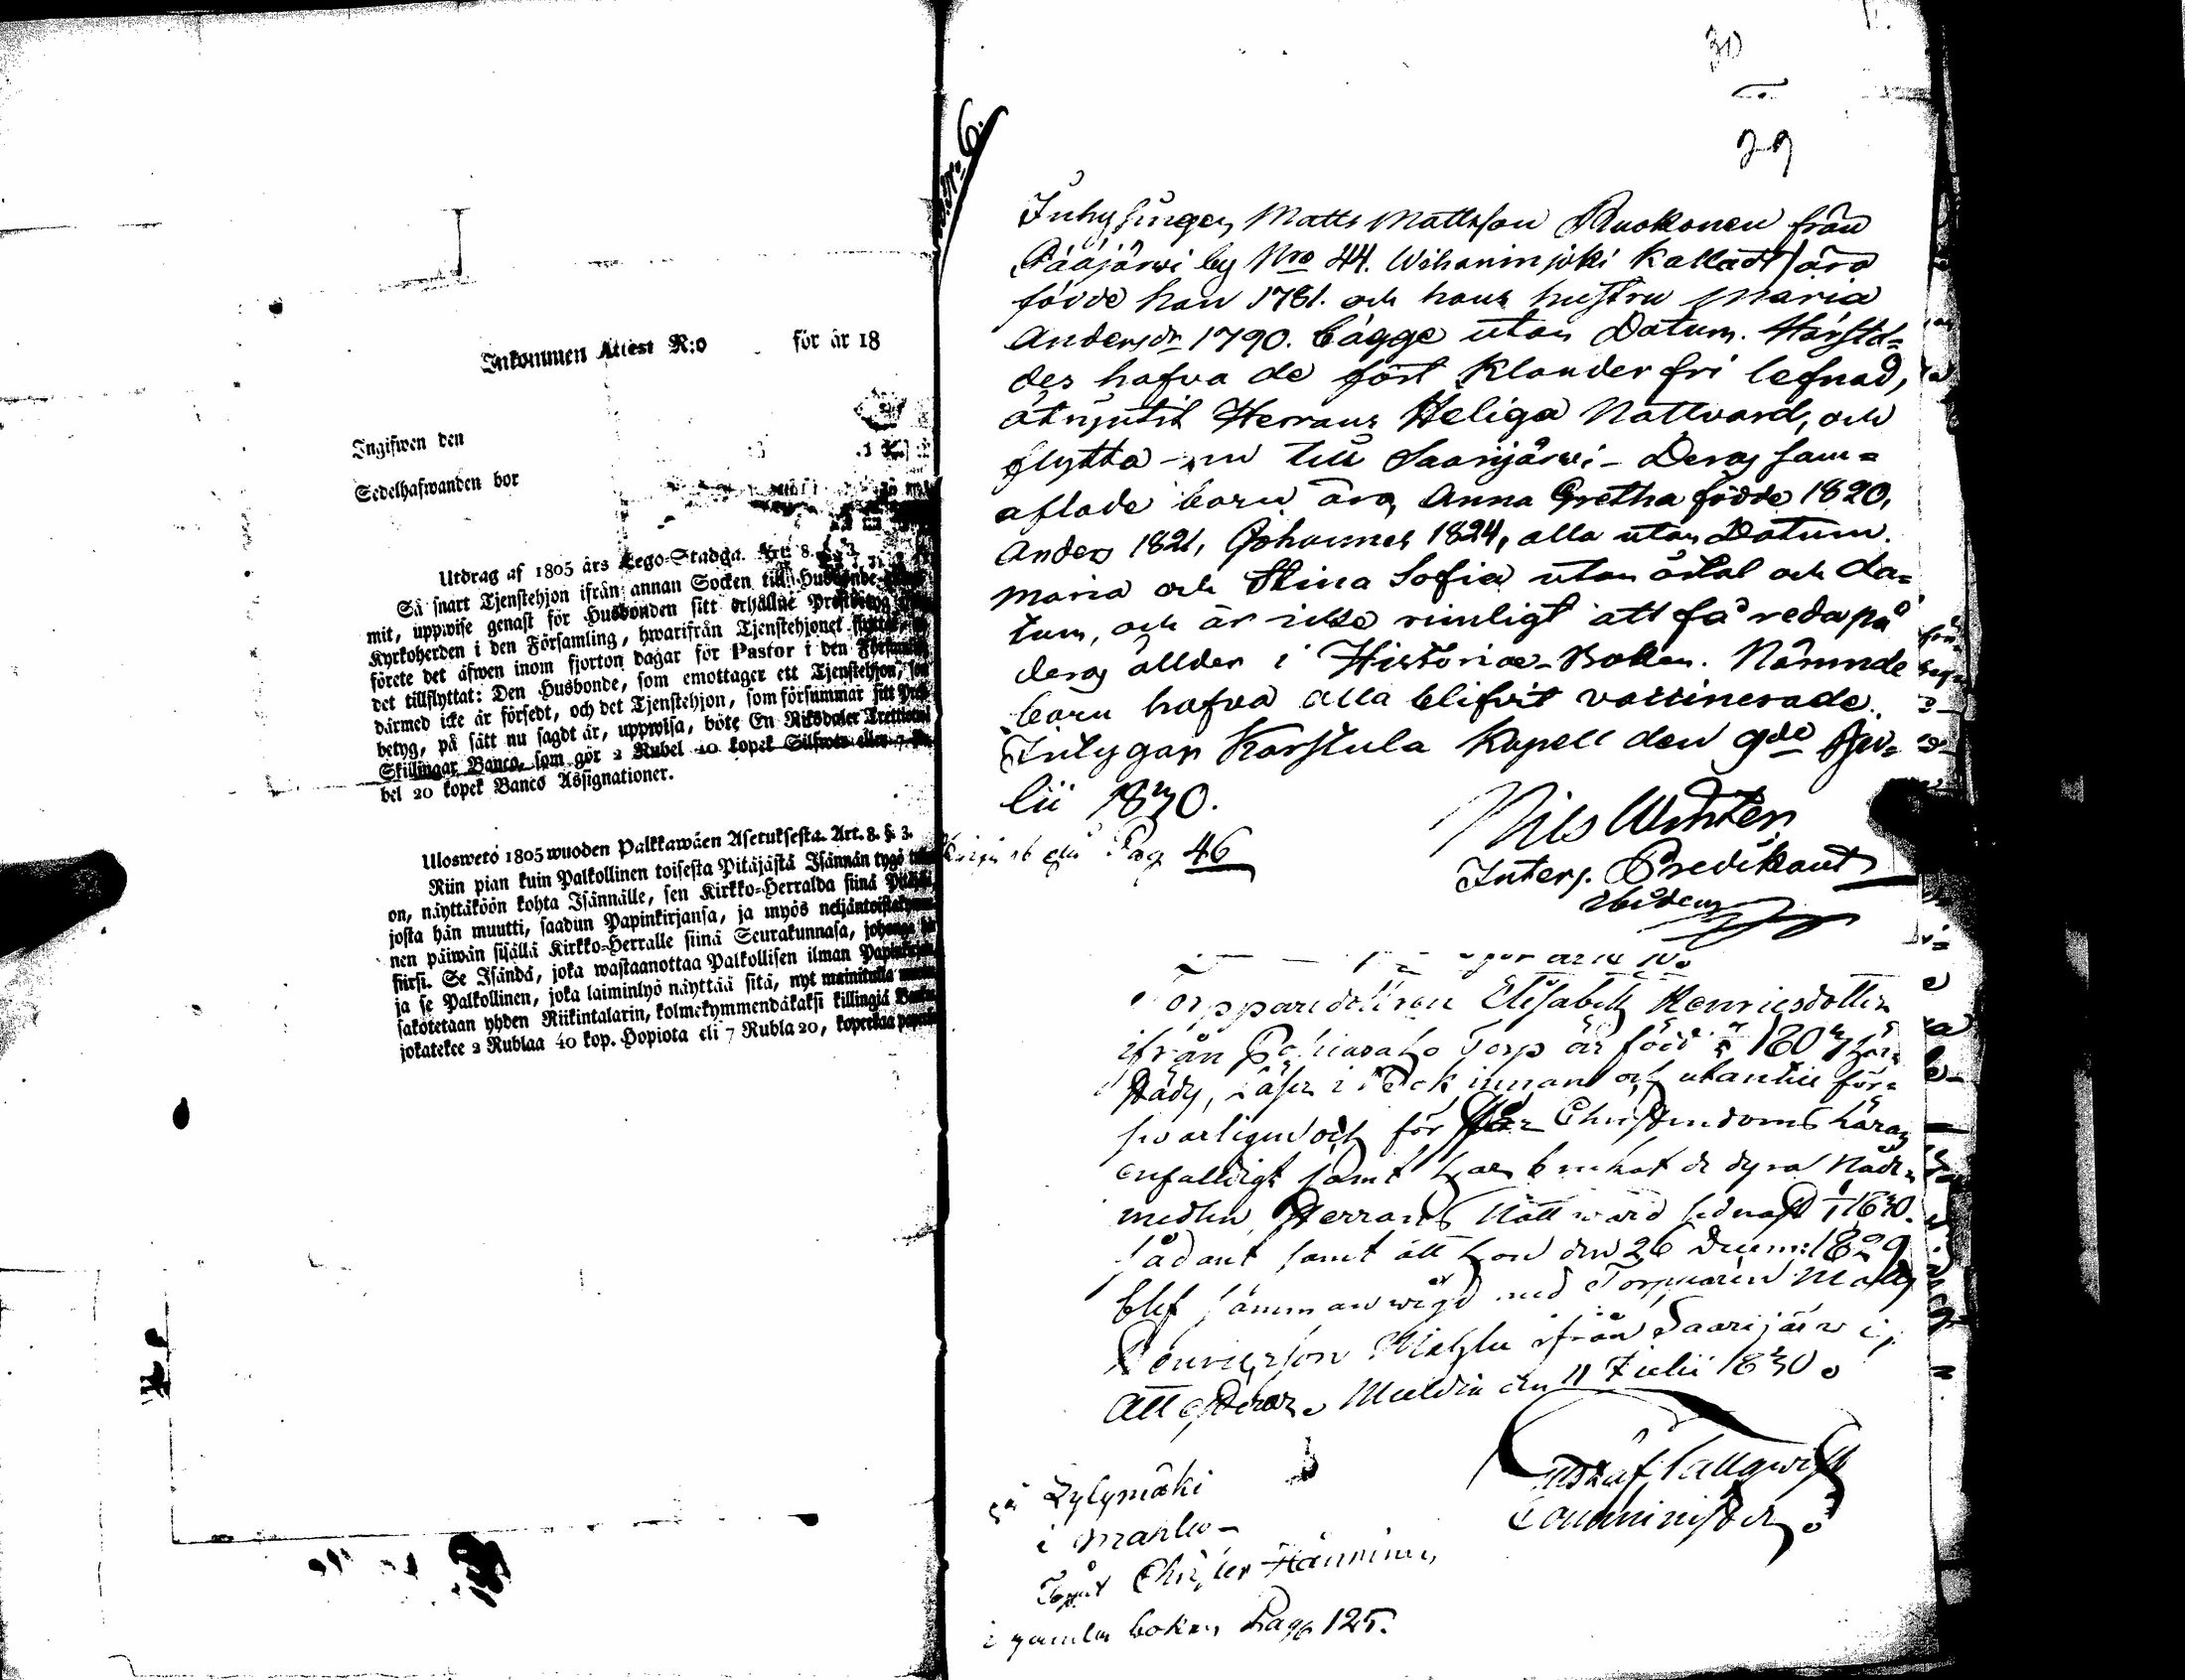 Inkommen Attest N:o för år 18
Ingifwen den
Sedelhafwanden bor
Utdrag af 1805 års Lego-Stadga. Art. 8. §. 3.
Så snart Tjenstehjon ifrån annan Socken till Husbonde
mit, uppwise genast för Husbonden sitt erhållne Prestbetyg
Kyrkoherden i den Församling, hwarifrån Tjenstehjonet
förete det äfwen inom fjorton dagar för Pastor i den Församling
det tillflyttat: Den Husbonde, som emottager ett Tjenstehjon, som
därmed icke är försedt, och det Tjenstehjon, som försummar sitt Prest-
betyg, på sätt nu sagdt är, uppwisa, böte En Riksdaler Trettiotwå
Skillingar Banco, som gör 2 Rubel 40 kopek Silfwer eller 7 Ru-
bel 20 kopek Banco Assignationer.
Ulosweto 1805 wuoden Palkkawäen Asetuksesta. Art. 8. §. 3.
Niin pian kuin Palkollinen toisesta Pitäjästä Isännän tygö
on, näyttäköön kohta Isännälle, sen Kirkko-Herralda siinä
josta hän muutti, saadun Papinkirjansa, ja myös neljäntoistakymme-
nen päiwän sisällä Kirkko-Herralle siinä Seurakunnasa, johonga
siirsi. Se Isändä, joka wastaanottaa Palkollisen ilman
ja se Palkollinen, joka laiminlyö näyttää sitä, nyt mainitulla
sakotetaan yhden Riikintalarin, kolmekymmendäkaksi killingiä Banco
jokatekee 2 Rublaa 40 kop. Hopiota eli 7 Rubla 20, kopekkaa
30
29
No 6.
Inhysingen Matts Mattsson Ruokonen från
Pääjärwi by Nro 44. Wihaninjoki Kalladt äro
födde han 1781. och hans hustru Maria
Andersdr 1790. bägge utan Datum. Härstä-
des hafva de fört Klanderfri lefnad,
åtnjutit Herrans Heliga Nattvard, och
flytta nu till Saarijärwi. Deras sam-
aflade barn äro, Anna Gretha födde 1820,
Anders 1821, Johannes 1824, alla utan Datum.
Maria och Stina Sofia utan årtal och da-
tum, och är icke rimligt att få reda på
deras ållder i Historiæ-Boken. Nämnde
barn hafva alla blifvit vaccinerade.
Intygar Karstula Kapell den 9de Ju-
lii 1830.
Nils Winter
Interj. Predikant
ibidem
Pag 46
Torpparedottren Elisabeth Henricsdotter
ifrån Torp är född 1807 här-
städs, läser i Bok innan och utantill för-
svarligen och för Christendoms läran
enfaldigt samt har brukat de dyra Nåde-
medlen Herrans Nattward sednast 1830.
sådant samt att hon den 26 Decem: 1829
blef sammanwigd med Torparen Matts
Henricsson Mahlu ifrån Saarijärwi,
Attesterar. Multia den 11 Julii 1830.
Gustaf Tallqwist
Comminister
på Kylymäki
i Mahlu
Christer Hänninen,
i gamla boken Pag 125.